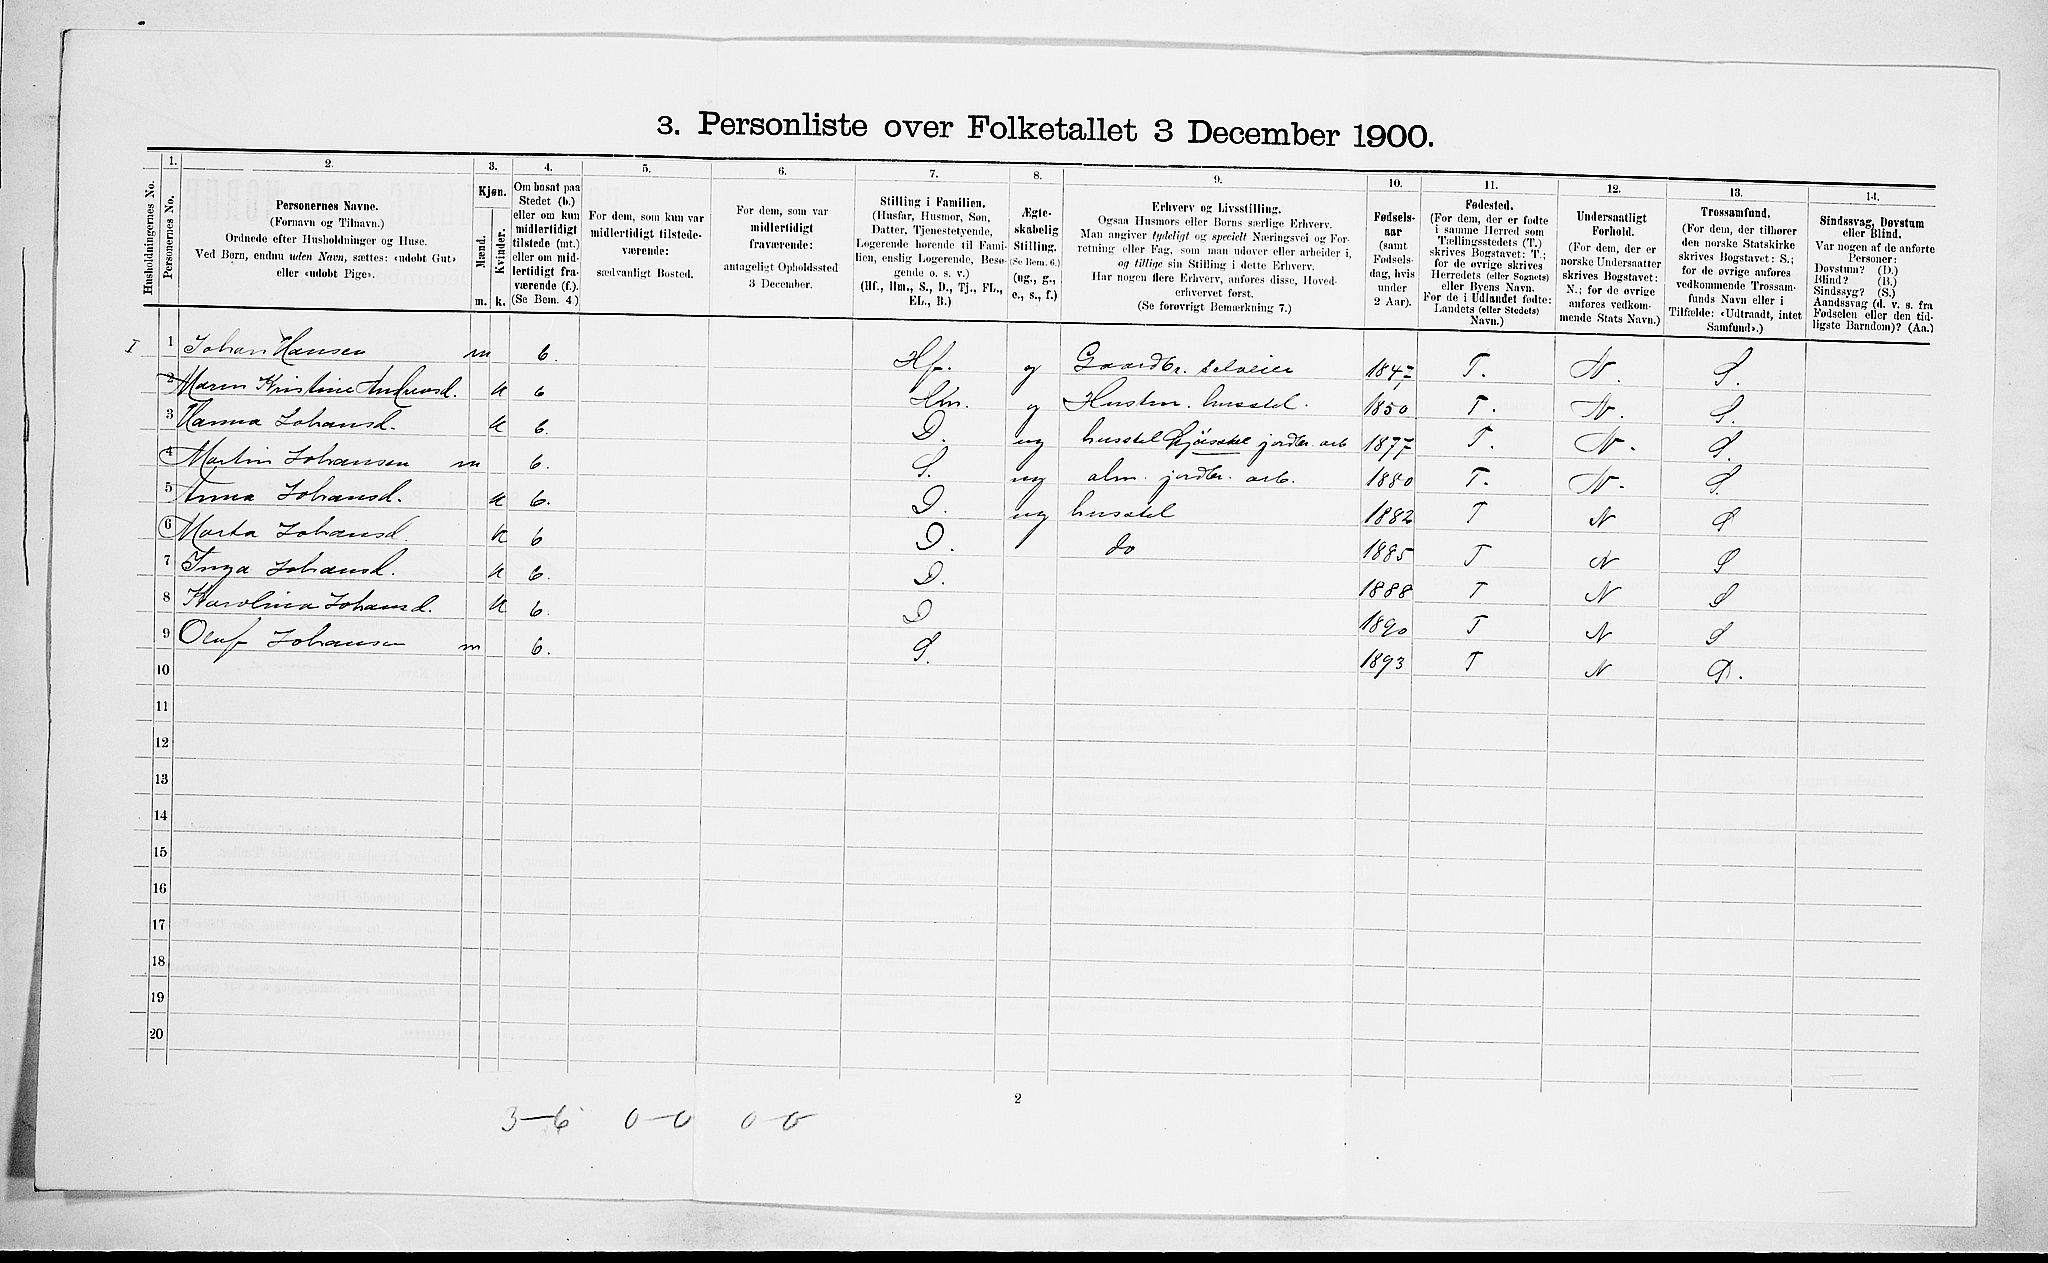 3. Personliste over Folketallet 3 December 1900.
Husholdningernes No.
1.
Personernes No.
2.
Personernes Navne.
(Fornavn og Tilnavn.)
Ordnede efter Husholdninger og Huse.
Ved Børn, endnu uden Navn, sættes: «udøbt Gut»
eller «udøbt Pige».
3.
Kjøn.
Mænd.
Kvinder.
m.
k.
4.
Om bosat paa
Stedet (b.)
eller om kun
midlertidigt
tilstede (mt.)
eller om mid-
lertidigt fra-
værende (f.).
(Se Bem. 4.)
5.
For dem, som kun var
midlertidigt tilstede-
værende:
sædvanligt Bosted.
6.
For dem, som var
midlertidigt
fraværende:
antageligt Opholdssted
3 December.
7.
Stilling i Familien.
(Husfar, Husmor, Søn,
Datter, Tjenestetyende,
Logerende hørende til Fami-
lien, enslig Logerende, Besø-
gende o. s. v.)
(Hf., Hm., S., D., Tj., FL.,
EL., B.)
8.
Ægte-
skabelig
Stilling.
(Se Bem. 6.)
(ug., g.,
e., s., f.)
9.
Erhverv og Livsstilling.
Ogsaa Husmors eller Børns særlige Erhverv.
Man angiver tydeligt og specielt Næringsvei og For-
retning eller Fag, som man udøver eller arbeider i,
og tillige sin Stilling i dette Erhverv.
Har nogen flere Erhverv, anføres disse, Hoved-
erhvervet først.
(Se forøvrigt Bemærkning 7.)
10.
Fødsels-
aar
(samt
Fødsels-
dag, hvis
under
2 Aar).
11.
Fødested.
(For dem, der er fødte
i samme Herred som
Tællingsstedets (T.)
skrives Bogstavet: T.;
for de øvrige skrives
Herredets (eller Sognets)
eller Byens Navn.
For de i Udlandet fødte:
Landets (eller Stedets)
Navn.)
12.
Undersaatligt
Forhold.
(For dem, der er
norske Undersaatter
skrives Bogstavet:
N.; for de øvrige
anføres vedkom-
mende Stats Navn.)
13.
Trossamfund.
(For dem, der tilhører
den norske Statskirke
skrives Bogstavet: S.;
for de øvrige anføres
vedkommende Trossam-
funds Navn eller i
Tilfælde: «Udtraadt, intet
Samfund».)
14.
Sindssvag, Døvstum
eller Blind.
Var nogen af de anførte
Personer:
Døvstum? (D.)
Blind? (B.)
Sindssyg? (S.)
Aandssvag (d. v. s. fra
Fødselen eller den tid-
ligste Barndom)? (Aa.)
I 1 Johan Hansen m b. Hf. g Gaardbr. selveier 1847 T. N. S.
2 Maren Kristine Andreasd. k b Hm. g Hustru. husstel. 1850 T. N. S.
3 Hanna Johansd. k b. D. ug husstel jordbr. arb 1877 T. N. S.
4 Martin Johansen m b. S. ug alm. jordbr. arb. 1880 T. N. S.
5 Anna Johansd. k b. D. ug husstel 1882 T N S
6 Marta Johansd. k b D. do 1885 T N S
7 Inga Johansd. k b. D. 1888 T N S
8 Karolina Johansd. k b. D 1890 T N S
9 Oluf Johansen m b. S. 1893 T N S.
10
11
12
13
14
15
16
17
18
19
20
2
3-6 0-0 0-0